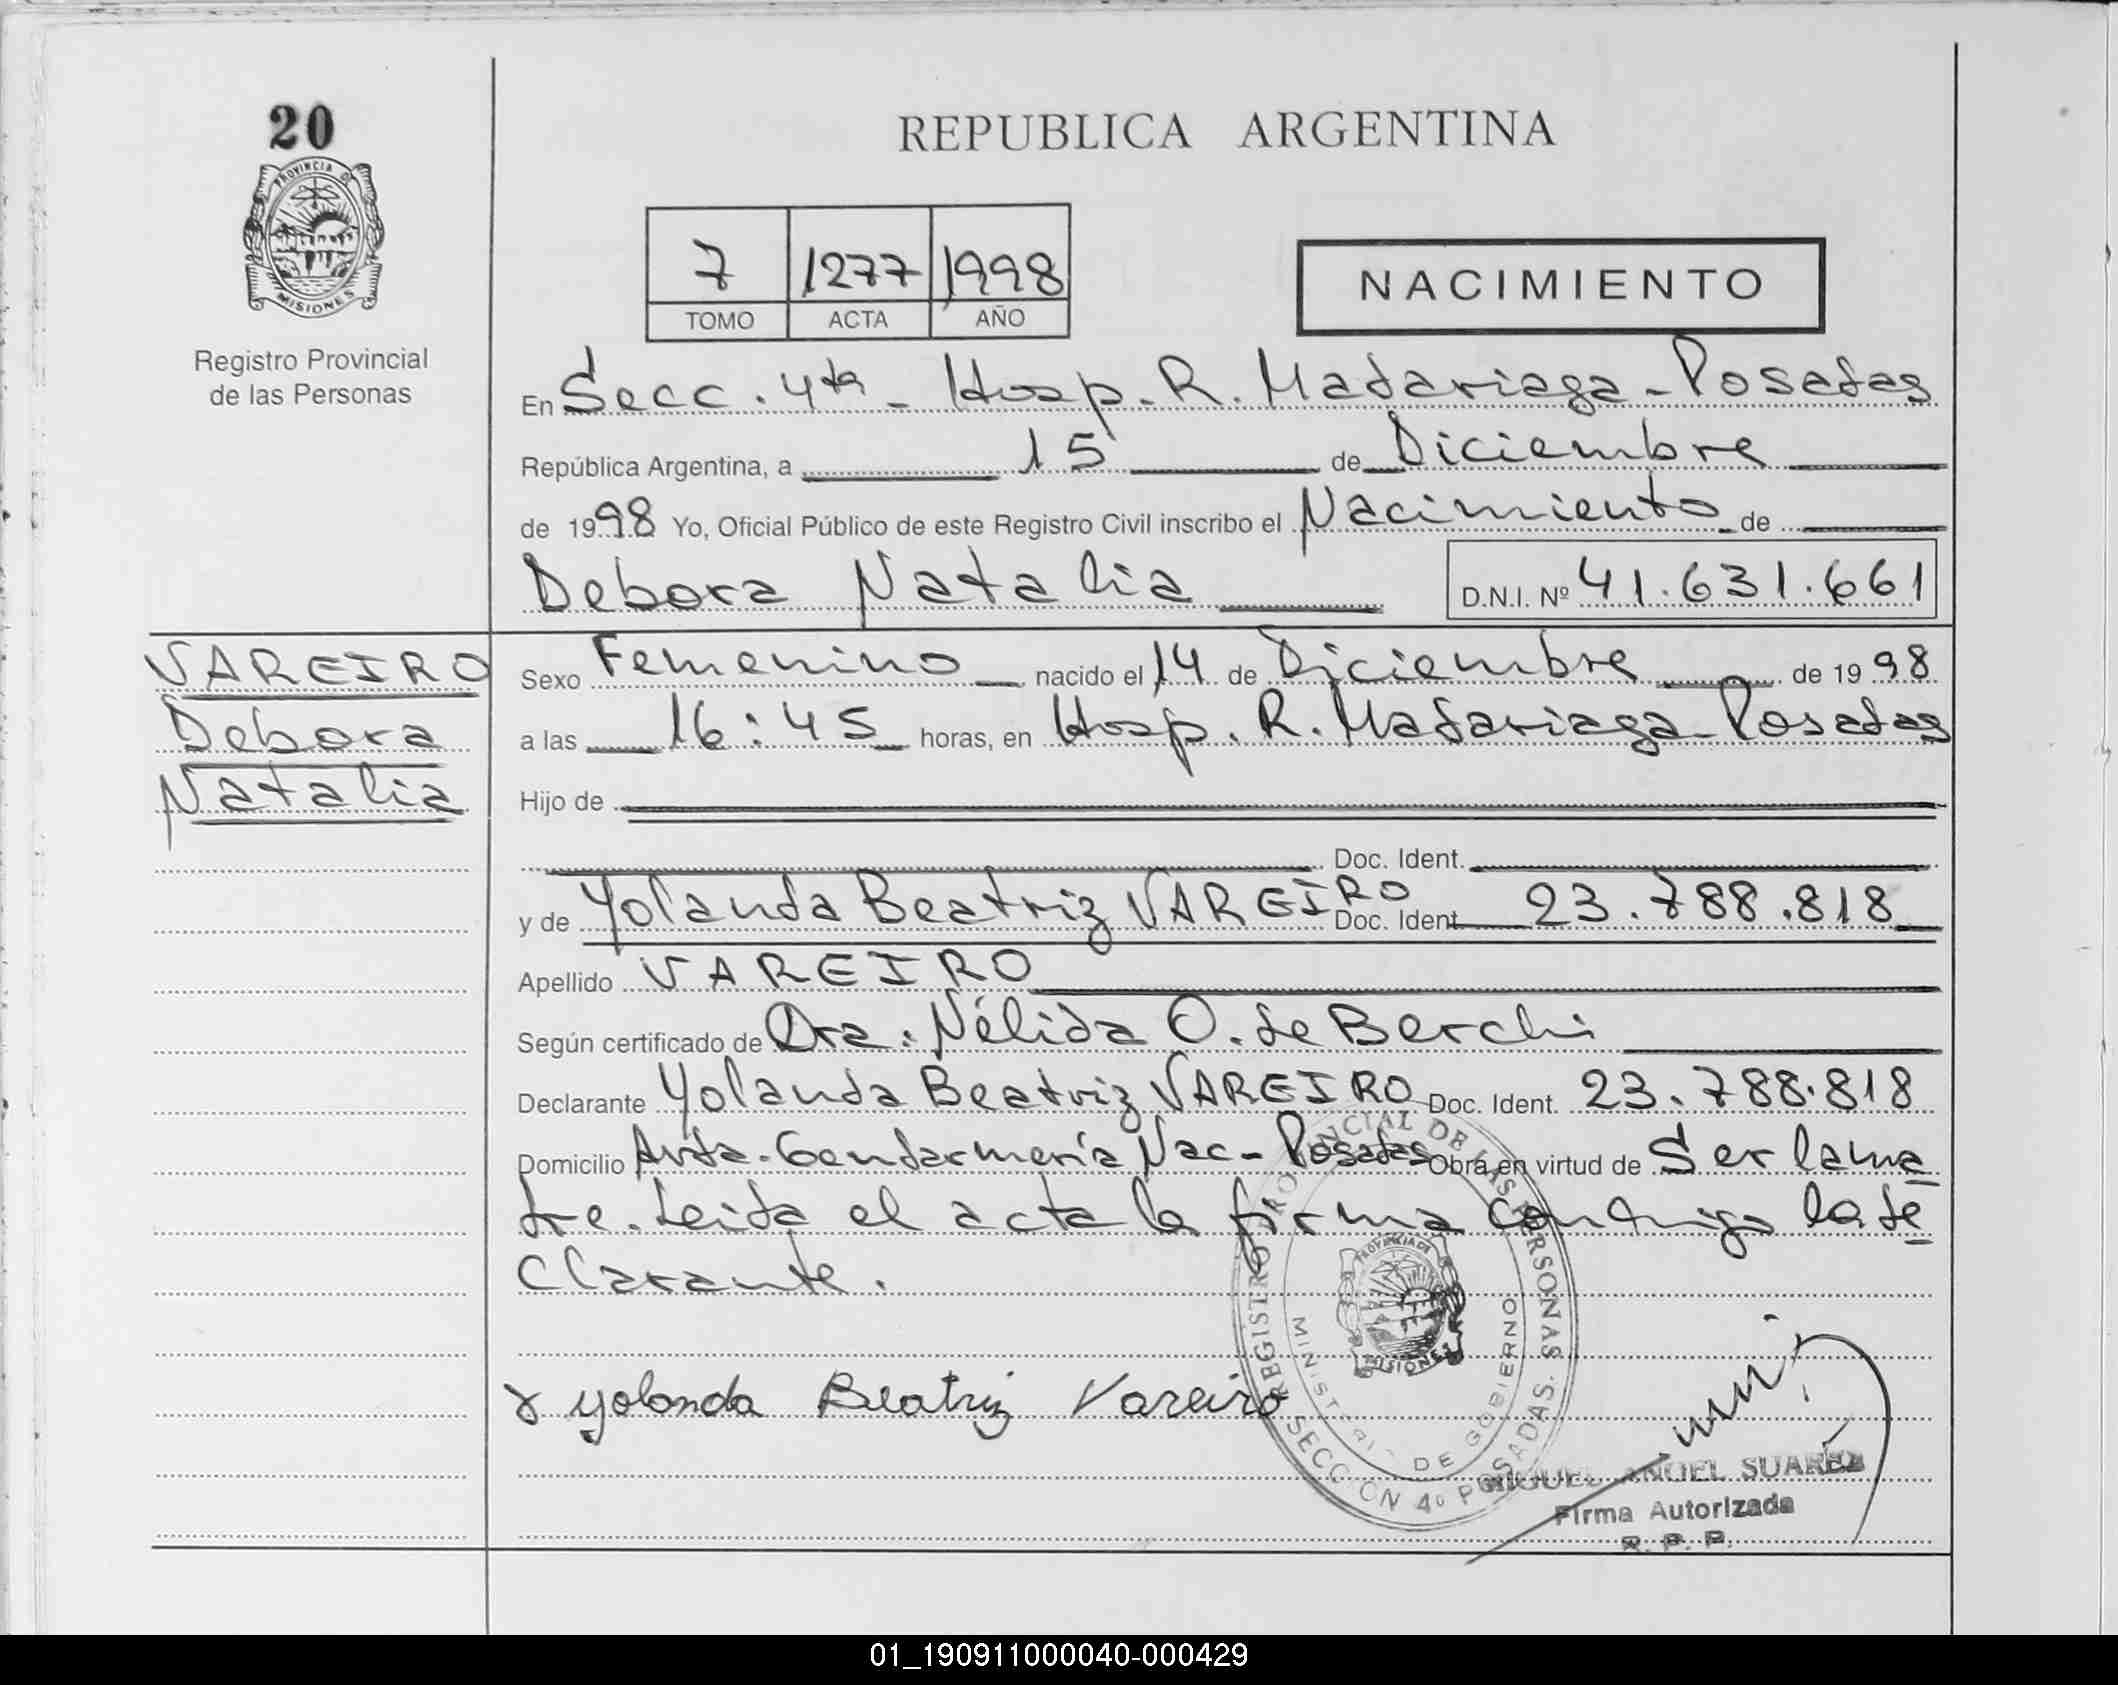 20
PROVINCIA DE
MISIONES
Registro Provincial
de las Personas
REPUBLICA ARGENTINA
7 1277 1998
TOMO ACTA AÑO
NACIMIENTO
En Secc. 4ta - Hosp. R. Madariaga - Posadas
República Argentina, a 15 de Diciembre
de 1998 Yo, Oficial Público de este Registro Civil inscribo el Nacimiento de
Debora Natalia D.N.I. Nº 41.631.661
VAREIRO
Debora
Natalia
Sexo Femenino nacido el 14 de Diciembre de 1998
a las 16:45 horas, en Hosp. R. Madariaga - Posadas
Hijo de
Doc. Ident.
y de Yolanda Beatriz VAREIRO Doc. Ident 23.788.818
Apellido VAREIRO
Según certificado de Dra. Nélida O. de Berchi
Declarante Yolanda Beatriz VAREIRO Doc. Ident. 23.788.818
Domicilio Avda. Gendarmería Nac - Posadas Obra en virtud de Ser la ma
dre. Leida el acta la firma conmigo la de
clarante.
Yolanda Beatriz Vareiro
REGISTRO PROVINCIAL DE LAS PERSONAS
MINISTERIO DE GOBIERNO
SECCION 4º POSADAS.
PROVINCIA DE
MISIONES
MIGUEL ANGEL SUAREZ
Firma Autorizada
R. P. P.
01_190911000040-000429